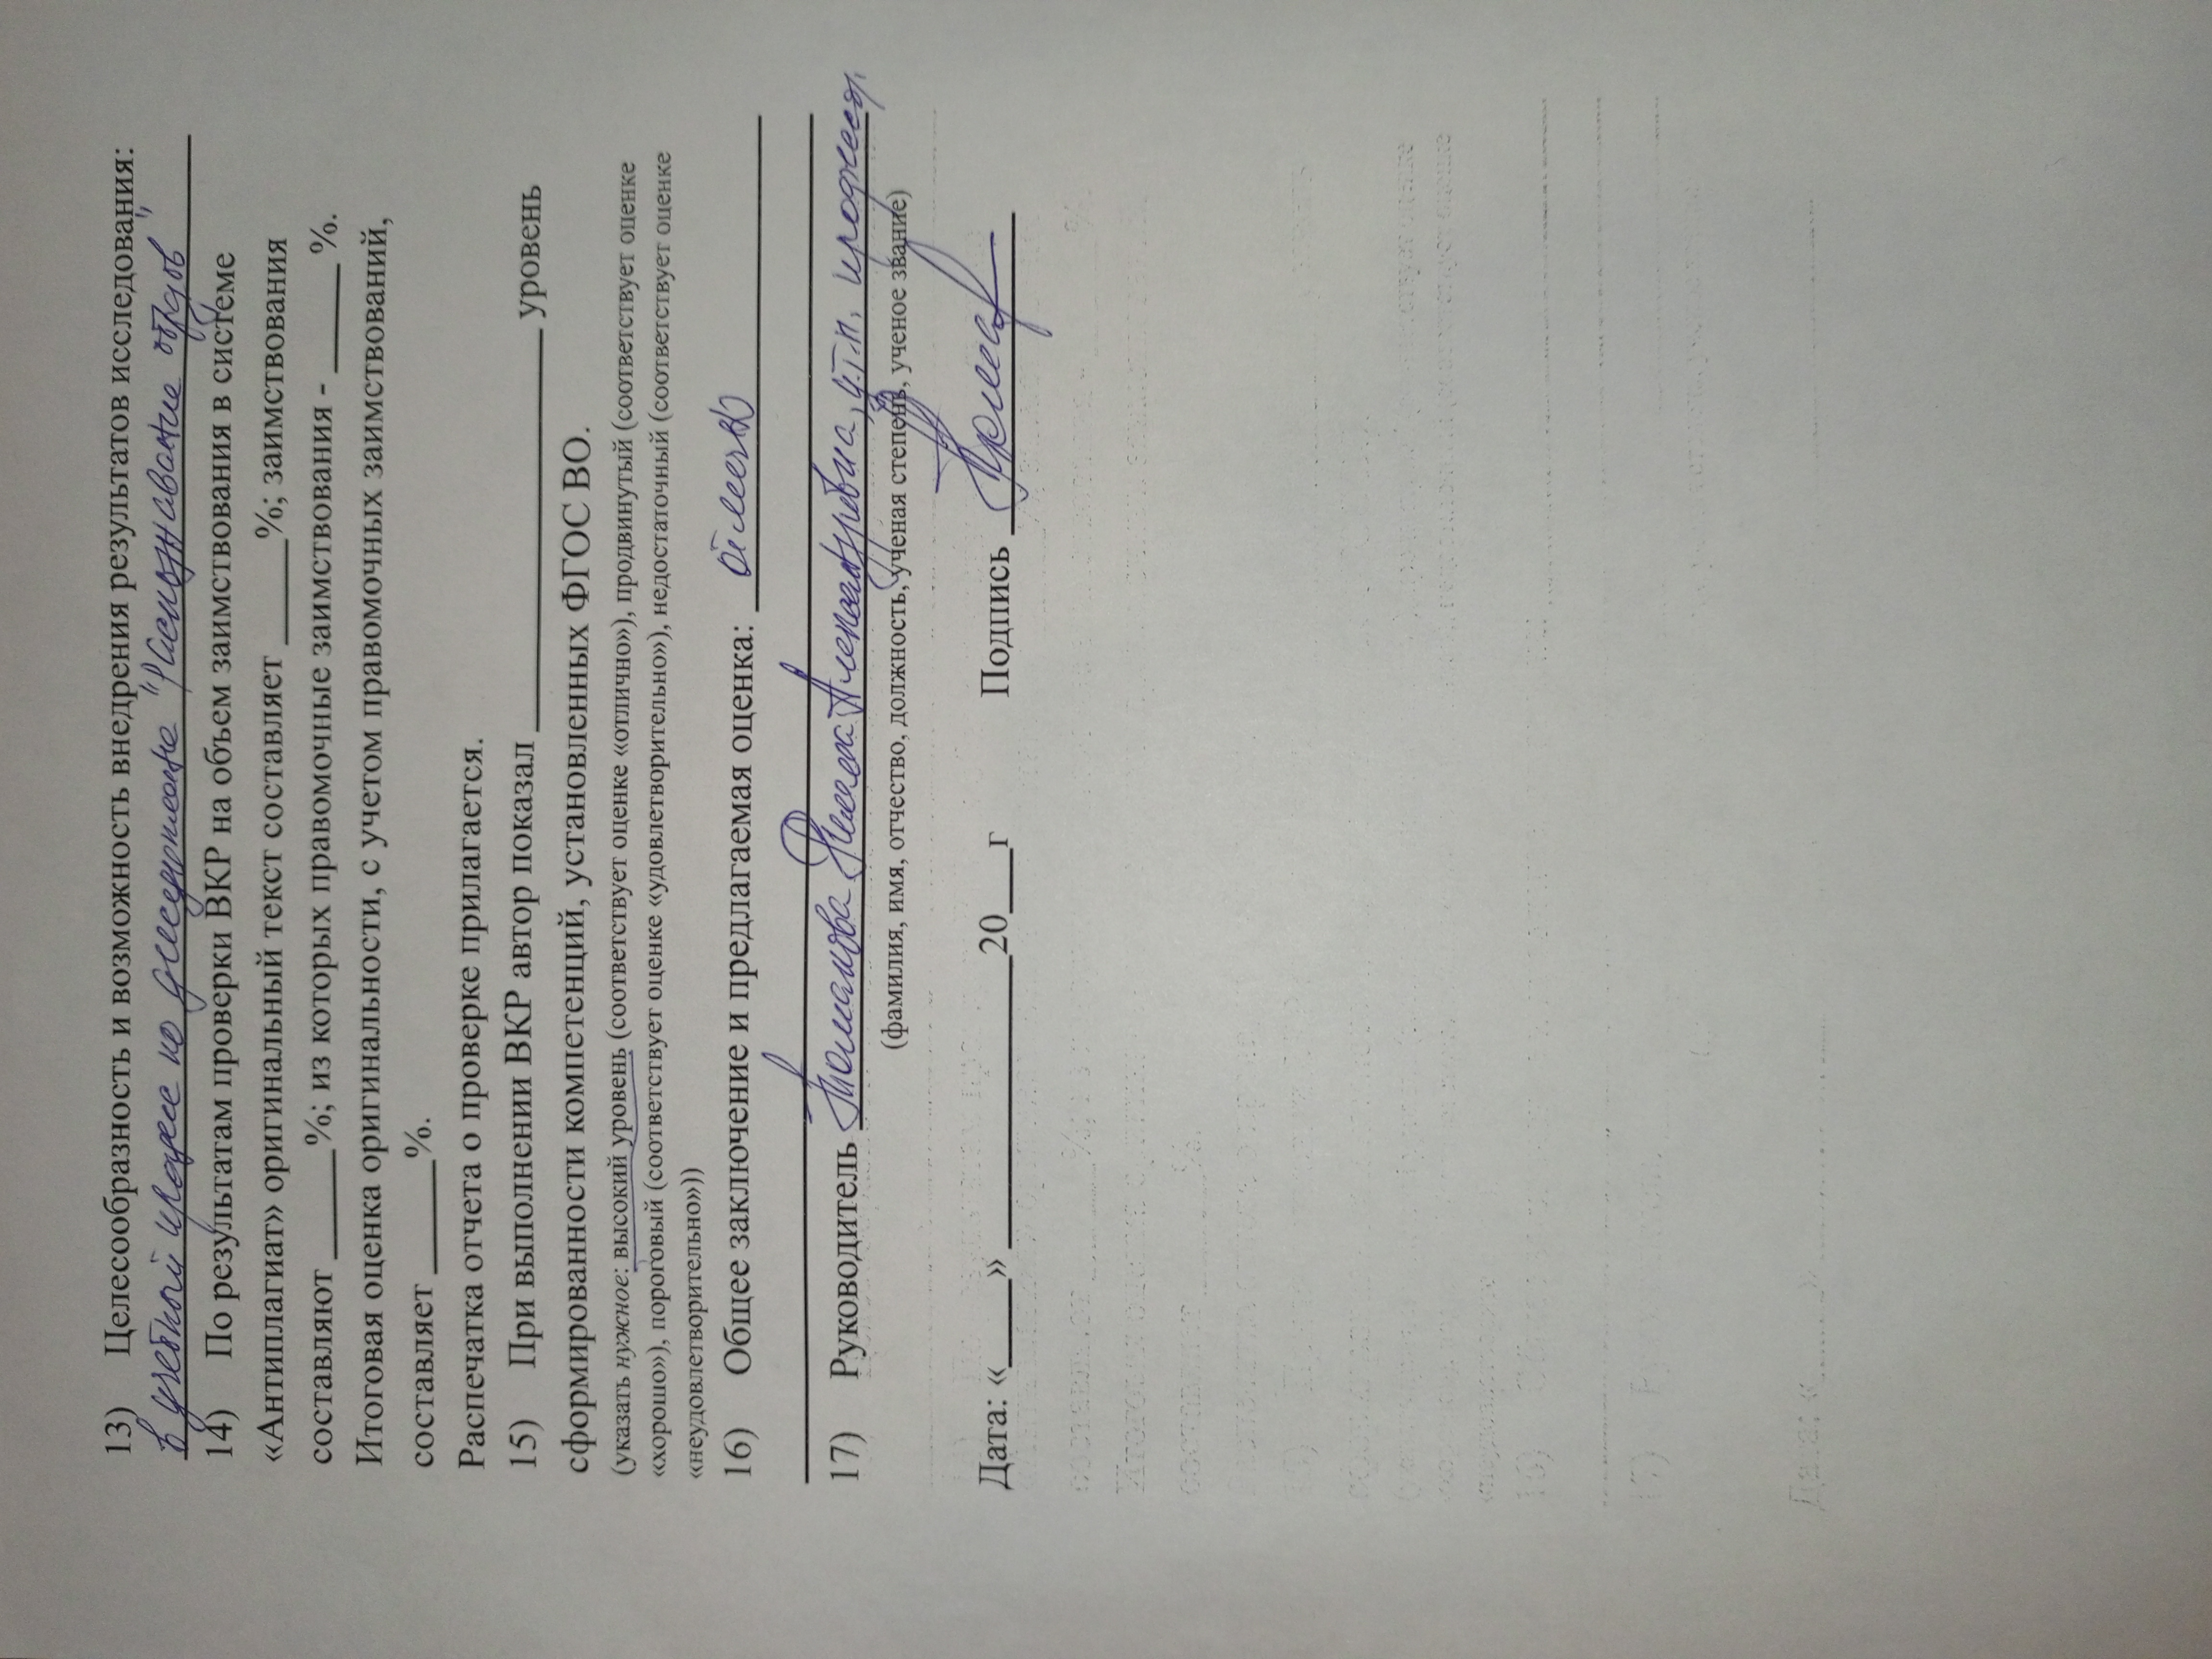 13) Целесообразность и возможность внедрения результатов исследования:
в учебный процесс по дисциплине "Распознавание образов"
14) По результатам проверки ВКР на объем заимствования в системе
«Антиплагиат» оригинальный текст составляет _____%; заимствования
составляют _____%; из которых правомочные заимствования - _____%.
Итоговая оценка оригинальности, с учетом правомочных заимствований,
составляет _____%.
Распечатка отчета о проверке прилагается.
15) При выполнении ВКР автор показал __________________ уровень
сформированности компетенций, установленных ФГОС ВО.
(указать нужное: высокий уровень (соответствует оценке «отлично»), продвинутый (соответствует оценке
«хорошо»), пороговый (соответствует оценке «удовлетворительно»), недостаточный (соответствует оценке
«неудовлетворительно»))
16) Общее заключение и предлагаемая оценка: отлично
17) Руководитель Римма Александровна,
(фамилия, имя, отчество, должность, ученая степень, ученое звание)
Дата: «____» _____________20___г Подпись